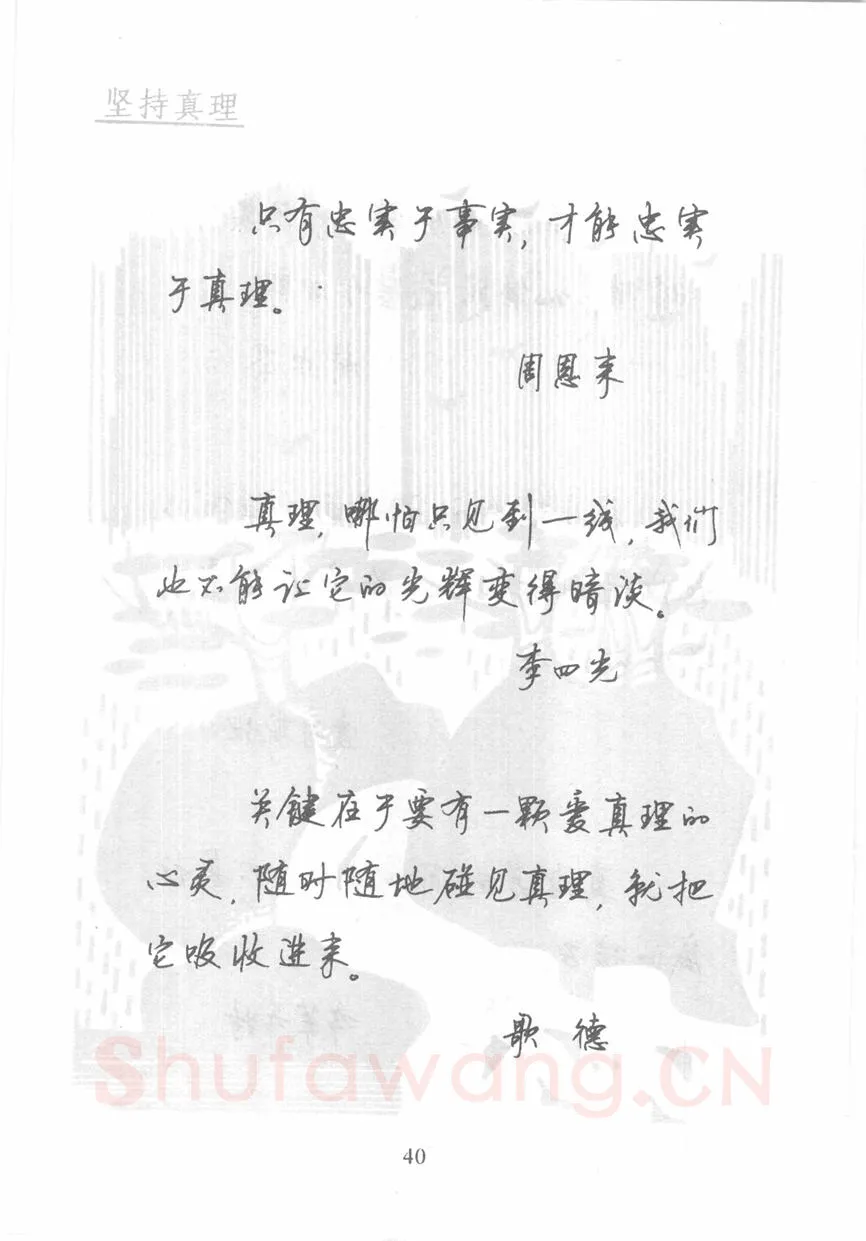 坚持真理
只有忠实于事实，才能忠实
于真理。
周恩来
真理，哪怕只见到一线，我们
也不能让它的光辉变得暗淡。
李四光
关键在于要有一颗爱真理的
心灵，随时随地碰见真理，就把
它吸收进来。
歌德
Shufawang.CN
40